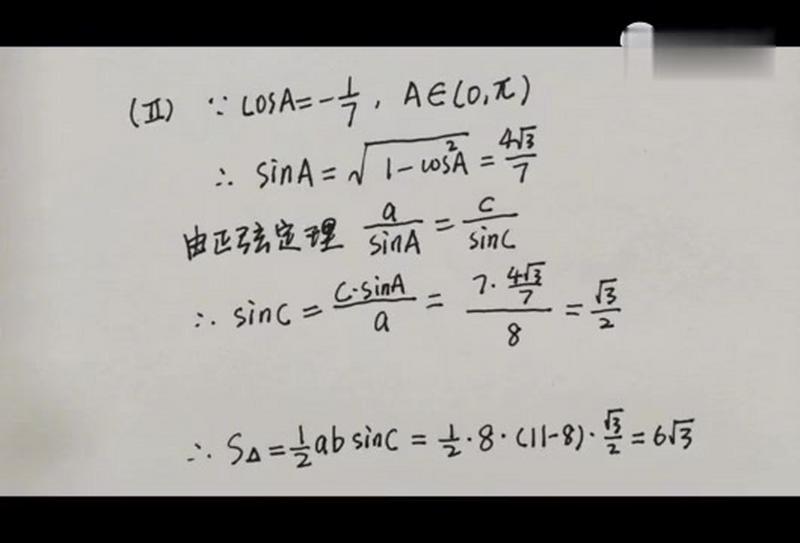 (Ⅱ) ∵ cosA=-1/7, A∈(0,π)
∴ sinA=√(1-cos²A)=4√3/7
由正弦定理 a/sinA=c/sinC
∴ sinC=c·sinA/a=(7·4√3/7)/8=√3/2
∴ S△=1/2absinC=1/2·8·(11-8)·√3/2=6√3